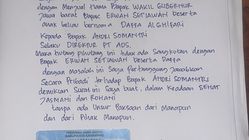 dengan Menjual Nama Bapak WAKIL GUBERNUR
Jawa barat Bapak ERWAN SETIAWAN Beserta
anak beliau bernama DAFFA ALGHIFARI
Kepada Bapak ANDRI SOMANTRI
Selaku DIREKTUR PT ADS.
Maka hutang piutang ini tidak ada Sangkutan dengan
Bapak ERWAN SETIAWAN Beserta DAFFA
dengan Masalah ini Saya Pertanggung Jawabkan
Secara Pribadi terhadap Bapak ANDRI SOMANTRI
demikian Surat ini Saya buat, dalam Keadaan SEHAT
JASMANI dan ROHANI
tanpa ada Unsur Paksaan dari Manapun
dan dari Pihak Manapun.